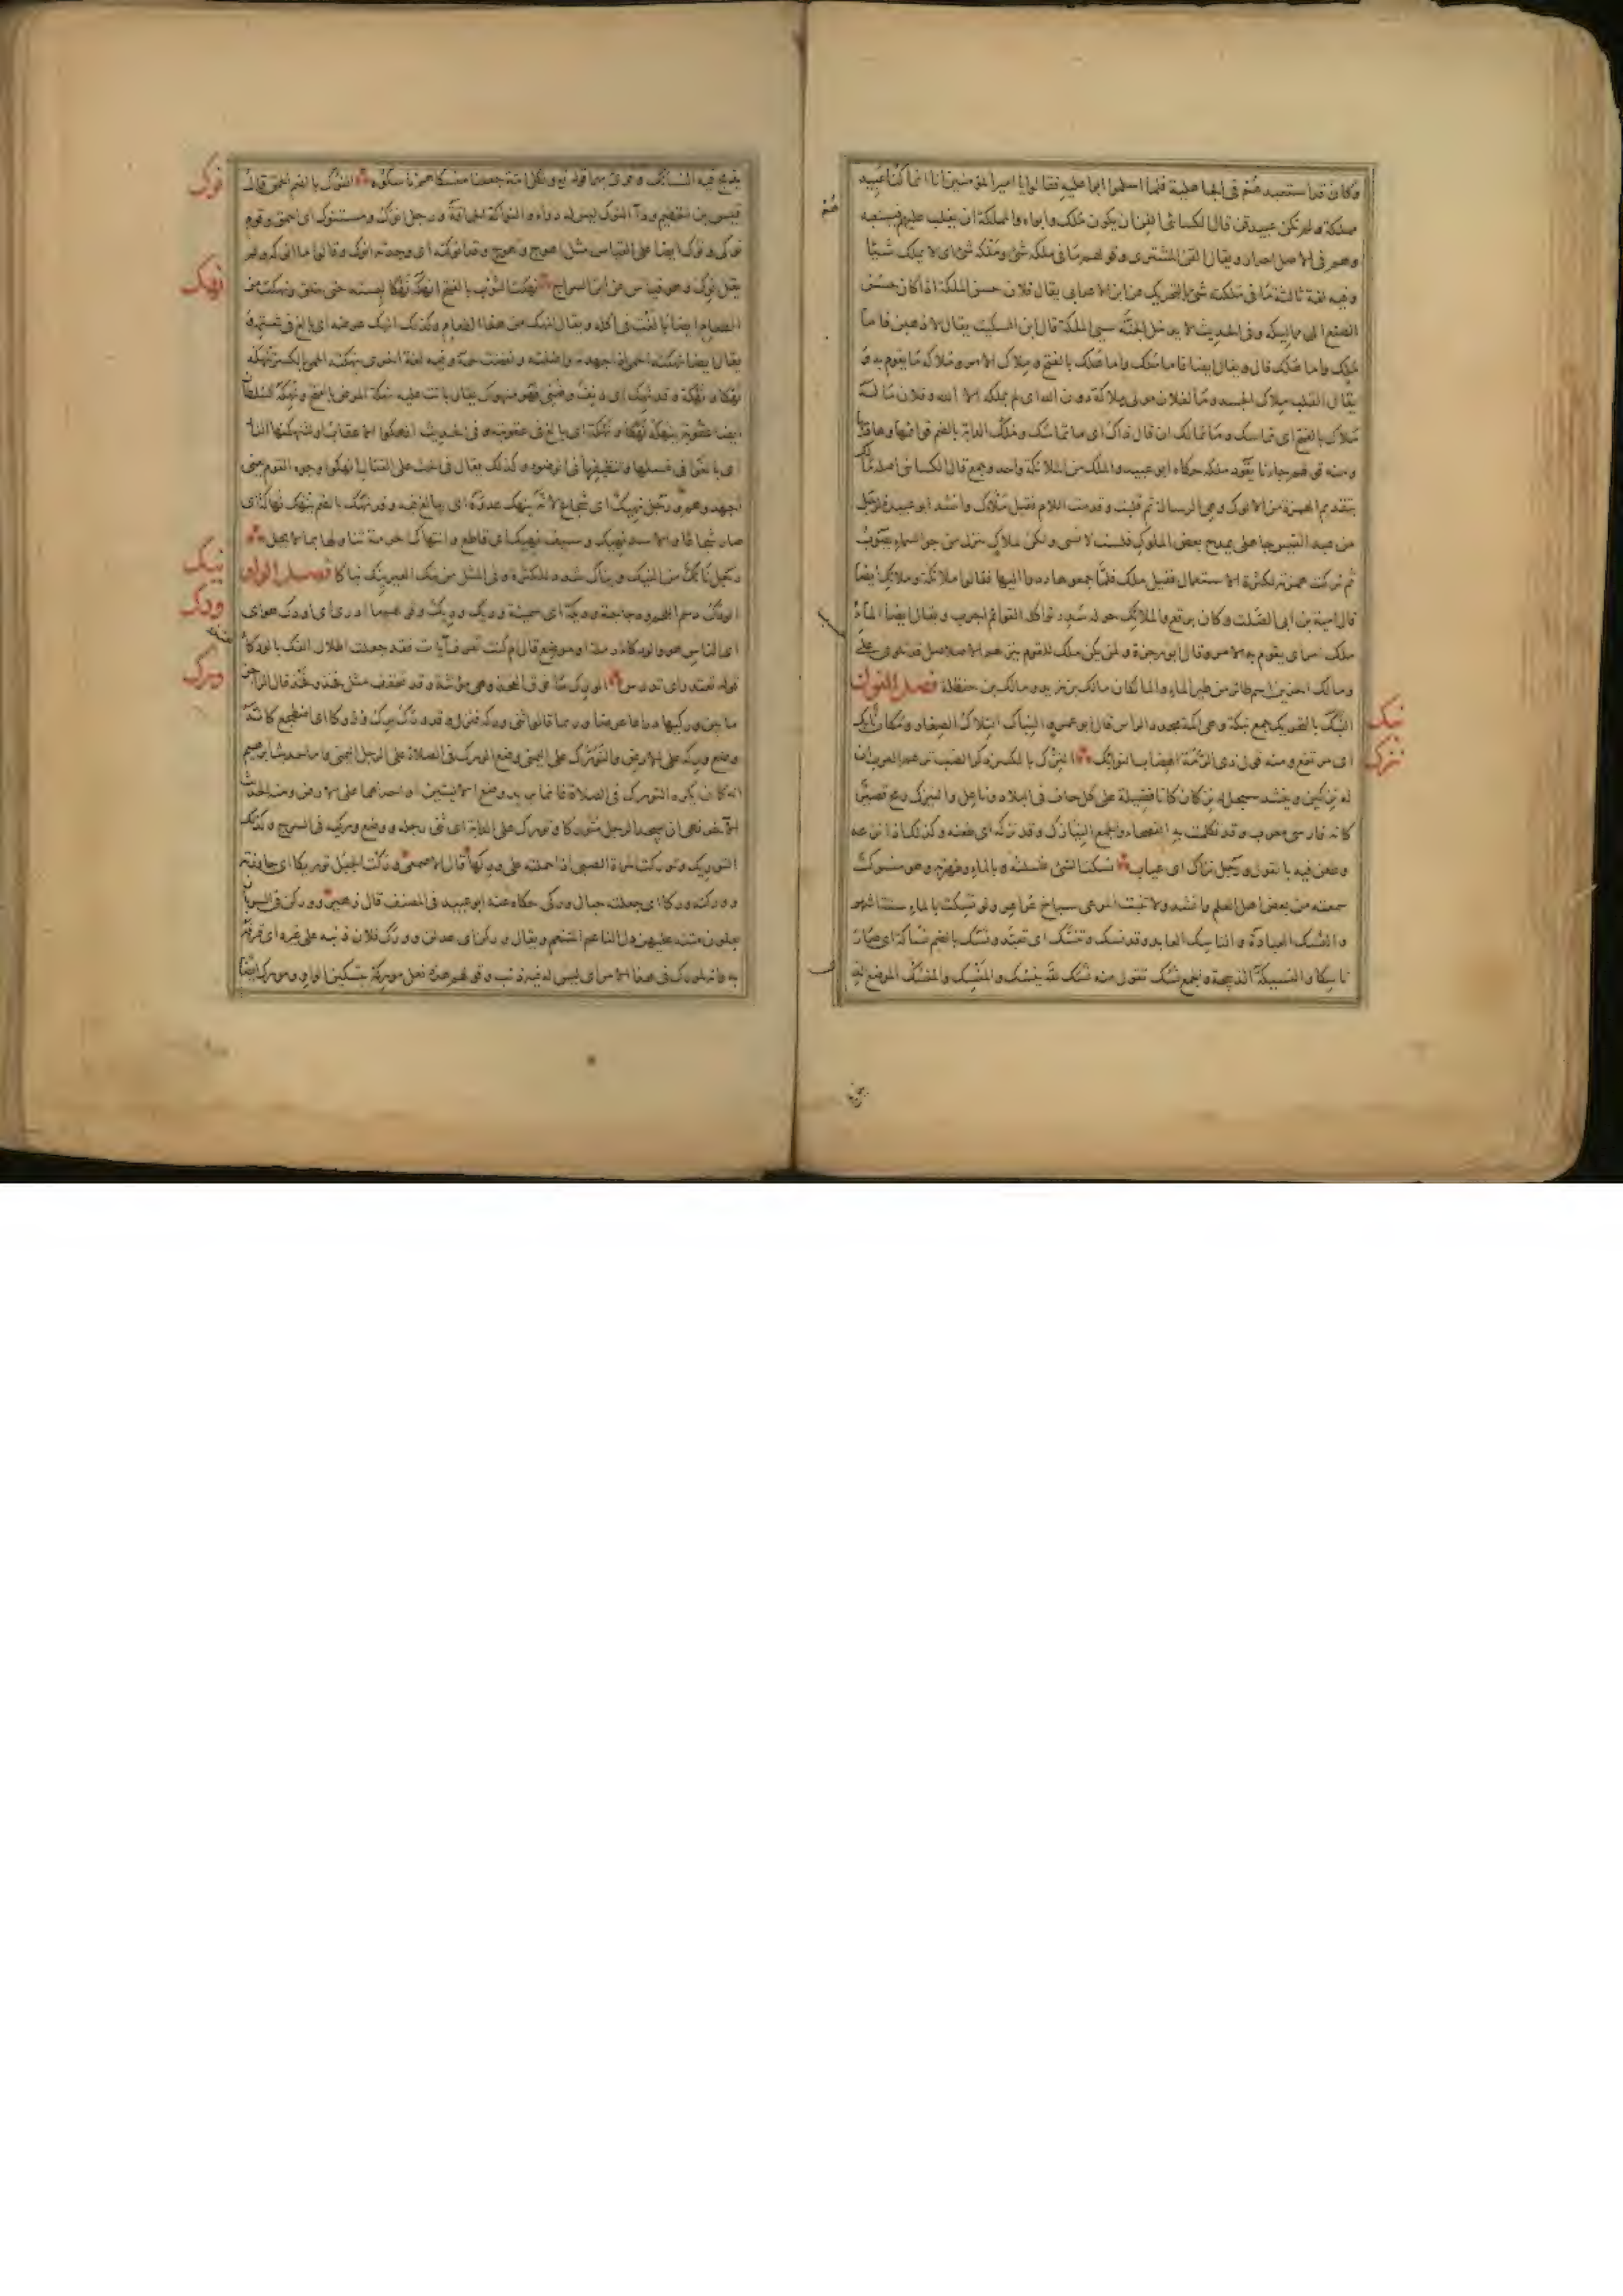 وكان قد استعبدهم فى الجاهلية فلما اسلموا ابوا عليه فقالوا يا امير المؤمنين انا انما كنا عبيد
مملكة ولم نكن عبيد قن قال الكسائى القن ان يكون ملك وابواه والمملكة ان يغلب عليهم فيستعبد
وهم فى الاصل احرار ويقال القن المشترى وقولهم ما فى ملكه شئ وملكه شئ اى لا يملك شيئا
وفيه لغة ثالثة ما فى ملكته شئ بالتحريك عن ابن الاعرابى يقال فلان حسن الملكة اذا كان حسن
الصنع الى مماليكه وفى الحديث لا يدخل الجنة سيئ الملكة قال ابن السكيت يقال لاذهبن فاما
ملك واما هلك قال ويقال ايضا فاما ملك واما هلك بالفتح وملاك الامر وملاكه ما يقوم به و
يقال القلب ملاك الجسد وما لفلان مولى ملاكة دون الله اى لم يملكه الا الله وفلان ما له
ملاك بالفتح اى تماسك وما تمالك ان قال ذاك اى ما تماسك وملك الدابة بالضم قوائمها وهاديها
ومنه قولهم جاءنا يقوده ملكه حكاه ابو عبيد والملك من الملائكة واحد وجمع قال الكسائى اصله مألك
بتقديم الهمزة من الالوك وهى الرسالة ثم قلبت وقدمت اللام فقيل ملأك وانشد ابو عبيدة لرجل
من عبد القيس جاهلى يمدح بعض الملوك فلست لانسى ولكن لملأك تنزل من جو السماء يصوب
ثم تركت همزته لكثرة الاستعمال فقيل ملك فلما جمعوه ردوها اليها فقالوا ملائكة وملائك ايضا
قال امية بن ابى الصلت وكان برقع والملائك حوله سدر تواكله القوائم اجرب ويقال ايضا الماء
ملك امر اى يقوم به الامر وقال ابو وجزة ولم يكن ملك للقوم ينزلهم الا صلاصل لا تلوى على
ومالك الحزين اسم طائر من طير الماء والمالكان مالك بن زيد ومالك بن حنظلة فصل النون
نبك
النبك بالتحريك جمع نبكة وهى اكمة محددة الراس قال ابو عمرو النباك التلال الصغار ومكان نابك
نزك
اى مرتفع ومنه قول ذى الرمة الهضاب النوابك النزك بالكسر ذكر الضب تزعم العرب ان
له نزكين وينشد سبحل له نزكان كانا فضيلة على كل حاف فى البلاد وناعل والنيزك رمح قصير
كانه فارسى معرب وقد تكلمت به الفصحاء والجمع النيازك وقد نزكه اى طعنه وكذلك اذا نزعه
وطعن فيه بالقول ورجل نزاك اى عياب نسكت الشئ غسلته بالماء وطهرته وهو منسوك
سمعته من بعض اهل العلم وانشد ولا تنبت المرعى سباخ عراعر ولو نسكت بالماء ستة اشهر
والنسك العبادة والناسك العابد وقد نسك وتنسك اى تعبد ونسك بالضم نساكة اى صار
ناسكا والنسيكة الذبيحة والجمع نسك تقول منه نسك لله ينسك والمنسك والمنسك الموضع الذى
يذبح فيه النسائك وقرئ بهما قوله تع ولكل امة جعلنا منسكا هم ناسكوه النوك بالضم الحمق قال
نوك
قيس بن الخطيم وداء النوك ليس له دواء والنواكة الحماقة ورجل انوك ومستنوك اى احمق وقوم
نوكى ونوك ايضا على القياس مثل اهوج وهوج وقد انوكته اى وجدته انوك وقالوا ما انوكه ولم
نهك
يقل انوك به وهو قياس عن ابن السراج نهكت الثوب بالفتح انهكه نهكا لبسته حتى خلق ونهكت من
الطعام ايضا بالغت فى اكله ويقال انهك من هذا الطعام وكذلك انهك عرضه اى بالغ فى شتمه و
يقال ايضا نهكته الحمى اذا جهدته واضنته ونقضت لحمه وفيه لغة اخرى نهكته الحمى بالكسر تنهكه
نهكا ونهكة وقد نهك اى دنف وضنى فهو منهوك يقال بانت عليه نهكة المرض بالفتح ونهكه السلطان
ايضا عقوبة ينهكه نهكا ونهكة اى بالغ فى عقوبته وفى الحديث انهكوا الاعقاب او لتنهكنها النار
اى بالغوا فى غسلها وتنظيفها فى الوضوء وكذلك يقال فى الحث على القتال انهكوا وجوه القوم يعنى
اجهدوهم ورجل نهيك اى شجاع لانه ينهك عدوه اى يبالغ فيه وقد نهك بالضم ينهك نهاكة اى
صار شجاعا والاسد نهيك وسيف نهيك اى قاطع وانتهاك الحرمة تناولها بما لا يحل
نيك
رجل نائك من النيك ونياك شدد للكثرة وفى المثل من ينك العير ينك نياكا فصل الواو
ودك
الودك دسم اللحم ودجاجة وديكة اى سمينة وديك وديك وقولهم ما ادرى اى اودك هو اى
اى الناس هو والودكاء رملة او موضع قال ام كنت تعرف آيات فقد جعلت اطلال الفك بالودكاء
ورك
قوله تعتذر اى تدرس الورك ما فوق الفخذ وهى مؤنثة وقد تخفف مثل فخذ وفخذ قال الراجز
ما بين وركيها ذراعا عرضا وربما قالوا ثنى وركه فنزل وقد ورك يرك وروكا اى اضطجع كانه
وضع وركه على الارض والتورك على اليمنى وضع الورك فى الصلاة على الرجل اليمنى واما حديث ابراهيم
انه كان يكره التورك فى الصلاة فانما يريد وضع الاليتين او احداهما على الارض ومنه الحديث
الآخر نهى ان يسجد الرجل متوركا وتورك على الدابة اى ثنى رجله ووضع وركه فى السرج وكذلك
التوريك وتوركت المرأة الصبى اذا حملته على وركها قال الاصمعى وركت الجبل توريكا اى جاوزته
ووركته وركا اى جعلته حيال وركى حكاه عنه ابو عبيد فى المصنف قال زهير ووركن فى السوبان
يعلون متنه عليهن دل الناعم المتنعم ويقال وركن اى عدلن وورك فلان ذنبه على غيره اى قرفه
به وانه لمورك فى هذا الامر اى ليس له فيه ذنب وقولهم هذه نعل موركة بتسكين الواو ومورك ايضا